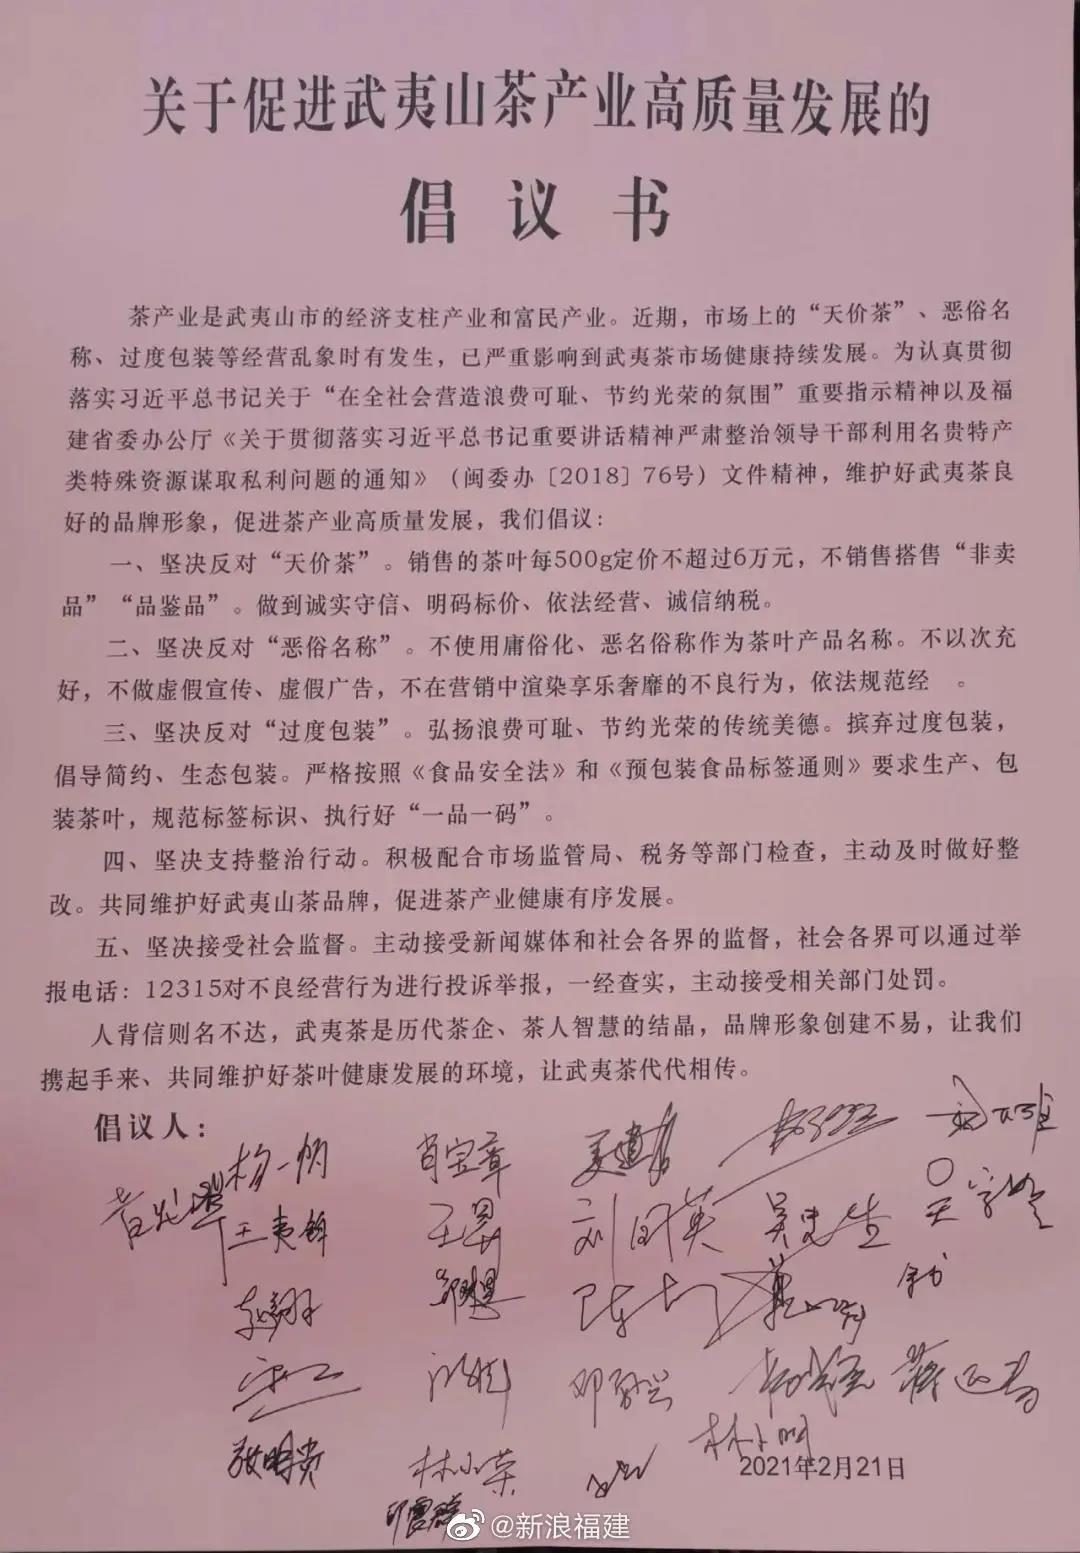 关于促进武夷山茶产业高质量发展的
倡议书
茶产业是武夷山市的经济支柱产业和富民产业。近期，市场上的“天价茶”、恶俗名
称、过度包装等经营乱象时有发生，已严重影响到武夷茶市场健康持续发展。为认真贯彻
落实习近平总书记关于“在全社会营造浪费可耻、节约光荣的氛围”重要指示精神以及福
建省委办公厅《关于贯彻落实习近平总书记重要讲话精神严肃整治领导干部利用名贵特产
类特殊资源谋取私利问题的通知》（闽委办〔2018〕76号）文件精神，维护好武夷茶良
好的品牌形象，促进茶产业高质量发展，我们倡议：
一、坚决反对“天价茶”。销售的茶叶每500g定价不超过6万元，不销售搭售“非卖
品”“品鉴品”。做到诚实守信、明码标价、依法经营、诚信纳税。
二、坚决反对“恶俗名称”。不使用庸俗化、恶名俗称作为茶叶产品名称。不以次充
好，不做虚假宣传、虚假广告，不在营销中渲染享乐奢靡的不良行为，依法规范经 。
三、坚决反对“过度包装”。弘扬浪费可耻、节约光荣的传统美德。摈弃过度包装，
倡导简约、生态包装。严格按照《食品安全法》和《预包装食品标签通则》要求生产、包
装茶叶，规范标签标识、执行好“一品一码”。
四、坚决支持整治行动。积极配合市场监管局、税务等部门检查，主动及时做好整
改。共同维护好武夷山茶品牌，促进茶产业健康有序发展。
五、坚决接受社会监督。主动接受新闻媒体和社会各界的监督，社会各界可以通过举
报电话：12315对不良经营行为进行投诉举报，一经查实，主动接受相关部门处罚。
人背信则名不达，武夷茶是历代茶企、茶人智慧的结晶，品牌形象创建不易，让我们
携起手来、共同维护好茶叶健康发展的环境，让武夷茶代代相传。
倡议人：
杨一帆 肖宝章
王昊 刘国英
林小荣
2021年2月21日
@新浪福建